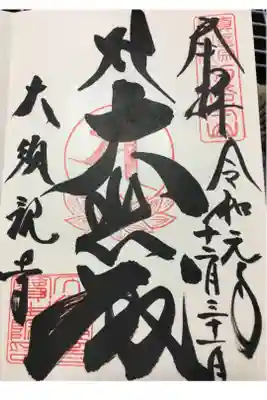 奉拝 令和元年
十二月三十一日
大悲殿
大須観音